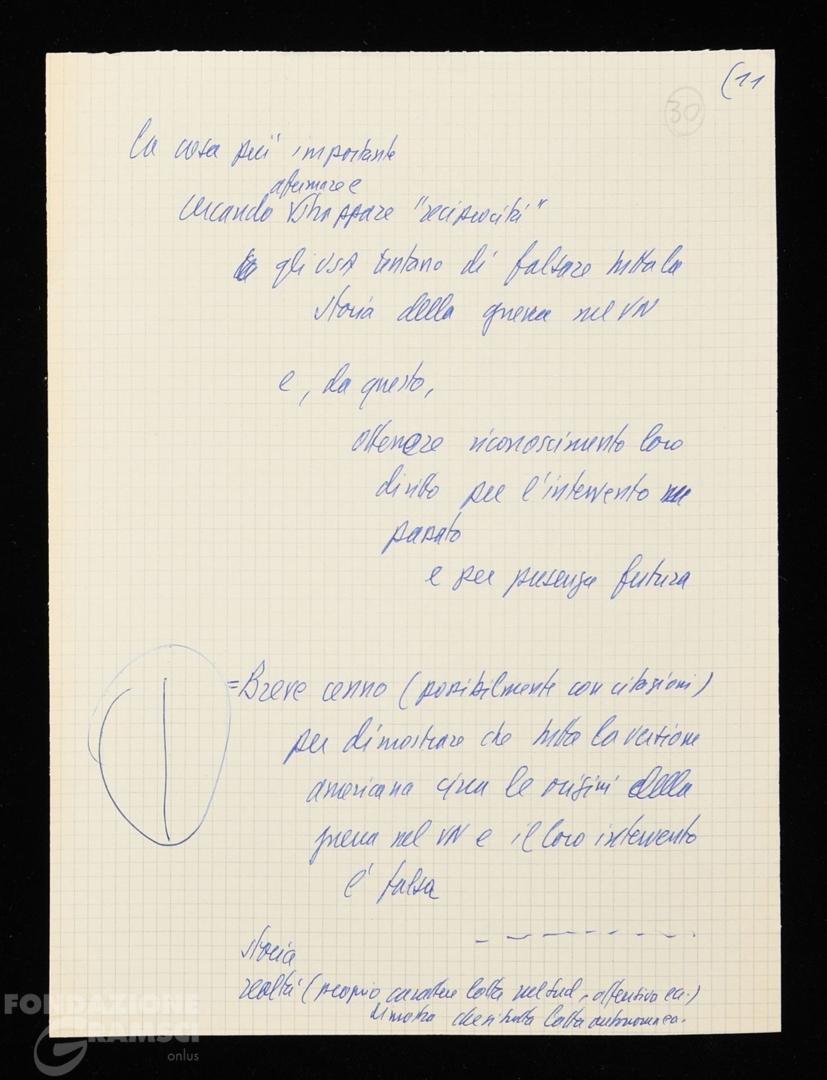 (11
30
la cosa più importante
affermare e
cercando strappare "reciprocità"
gli USA tentano di falsare tutta la
storia della guerra nel VN
e, da questo,
ottenere riconoscimento loro
diritto per l'intervento
passato
e per presenza futura
= Breve cenno (possibilmente con citazioni)
per dimostrare che tutta la versione
americana circa le origini della
guerra nel VN e il loro intervento
è falsa
storia
realtà (proprio carattere lotta nel sud, offensiva ecc.)
dimostra che si tratta lotta autonoma.
FONDAZIONE
GRAMSCI
onlus